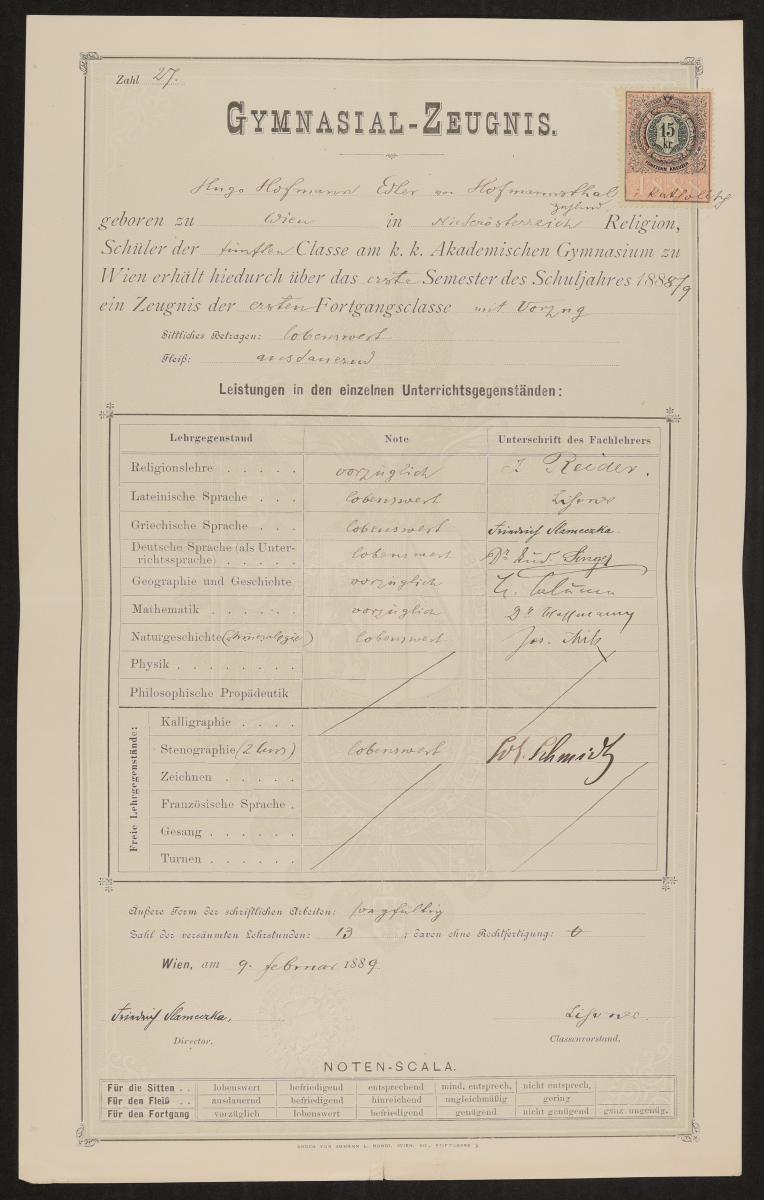 Zahl 27.
GYMNASIAL-ZEUGNIS.
15
kr.
FÜNFZEHN KREUZER
1888
Hugo Hofmann Edler von Hofmannsthal, katholisch
geboren zu Wien in Niederösterreich Religion,
Schüler der fünften Classe am k. k. Akademischen Gymnasium zu
Wien erhält hiedurch über das erste Semester des Schuljahres 1888/9
ein Zeugnis der ersten Fortgangsclasse mit Vorzug
Sittliches Betragen: lobenswert
Fleiß: ausdauernd
Leistungen in den einzelnen Unterrichtsgegenständen:
Lehrgegenstand Note Unterschrift des Fachlehrers
Religionslehre . . . . . vorzüglich J Reider.
Lateinische Sprache . . . lobenswert
Griechische Sprache . . . lobenswert Friedrich Slameczka.
Deutsche Sprache (als Unter-
richtssprache) . . . . . lobenswert Dr Rud. Singer
Geographie und Geschichte vorzüglich
Mathematik . . . . . . vorzüglich Dr Hoffmann
Naturgeschichte (Mineralogie) lobenswert Jos. Mik
Physik . . . . . . . .
Philosophische Propädeutik
Freie Lehrgegenstände:
Kalligraphie . . . .
Stenographie (2 Curs) lobenswert Schmidt
Zeichnen . . . . .
Französische Sprache .
Gesang . . . . . .
Turnen . . . . . .
Äußere Form der schriftlichen Arbeiten: sorgfältig
Zahl der versäumten Lehrstunden: 13 ; davon ohne Rechtfertigung: 0
Wien, am 9. Februar 1889
Friedrich Slameczka,
Director. Classenvorstand.
NOTEN-SCALA.
Für die Sitten . . lobenswert befriedigend entsprechend mind. entsprech. nicht entsprech.
Für den Fleiß . . ausdauernd befriedigend hinreichend ungleichmäßig gering
Für den Fortgang vorzüglich lobenswert befriedigend genügend nicht genügend ganz ungenüg.